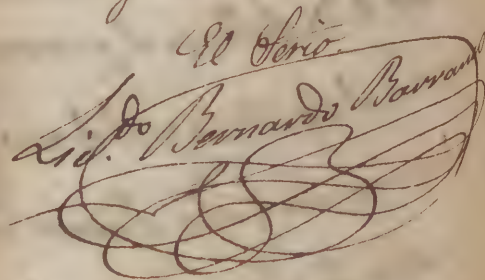 El Serio.
Lic.do Bernardo Barranco